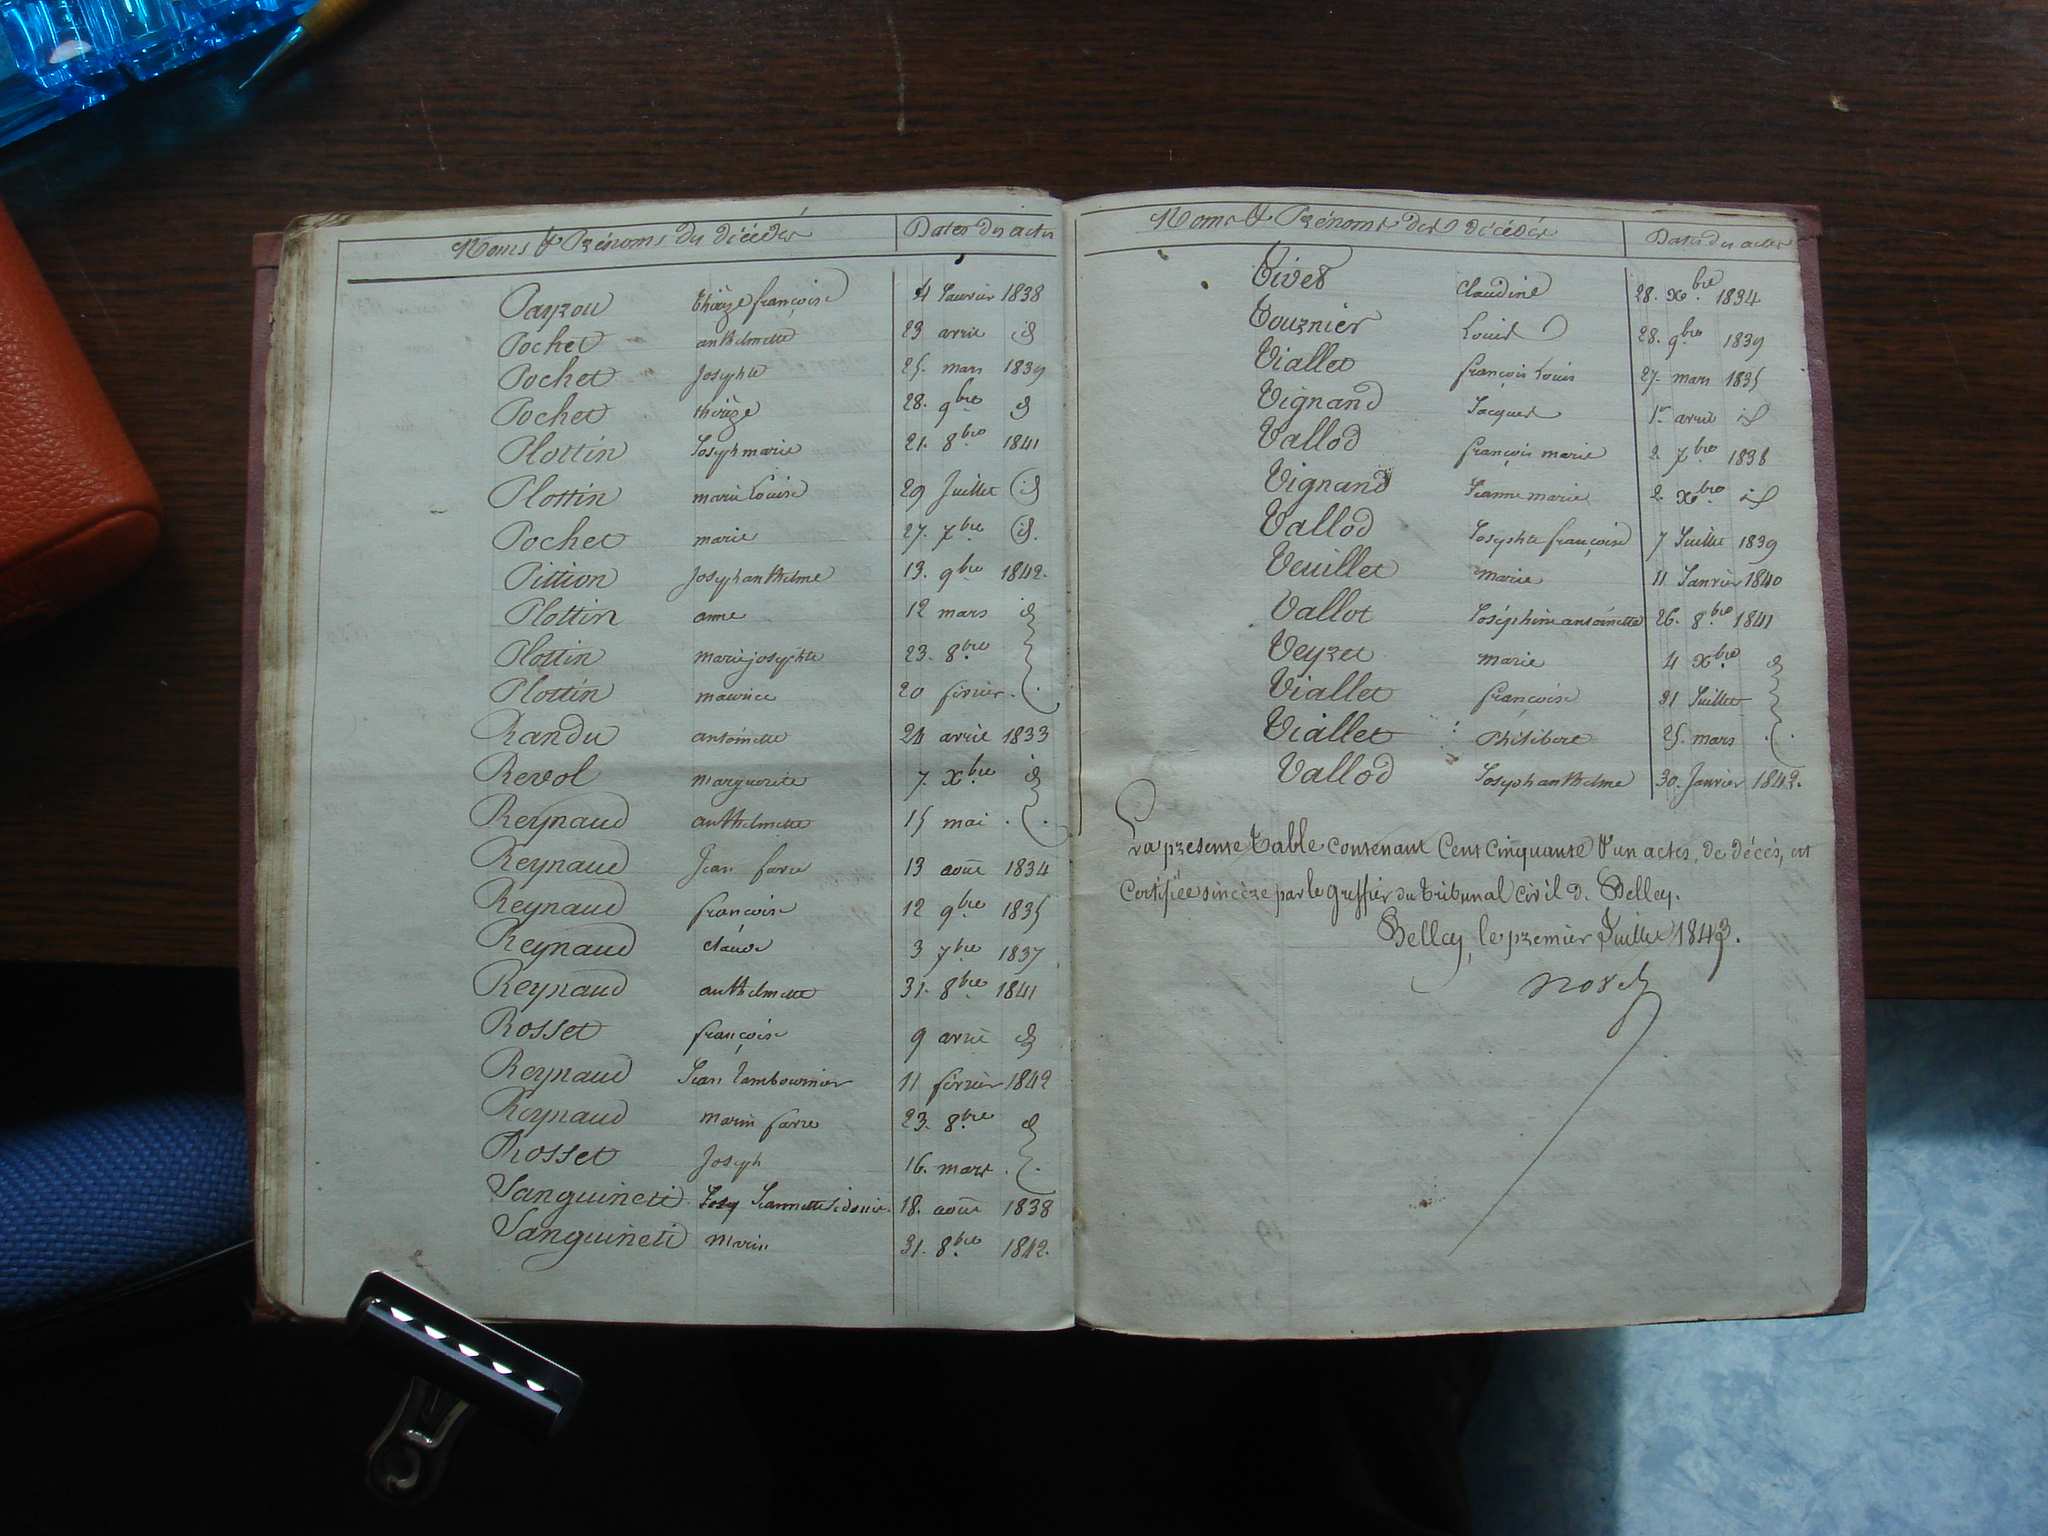 Noms & Prénoms des décédés Dates des actes
Payzou thérèze françoise 4 Janvier 1838
Pochet anthelmette 23 avril id
Pochet Josephte 25. mars 1839
Pochet thérèze 28. 9bre id
Plottin Joseph marie 21. 8bre 1841
Plottin marie Louise 29 Juillet id
Pochet marie 27. 7bre id.
Pittion Joseph anthelme 13. 9bre 1842.
Plottin anne 12 mars id
Plottin marie josephte 23. 8bre
Plottin maurice 20 février.
Randu antoinette 24 avril 1833
Revol marguerite 7. Xbre id
Reynaud anthelmette 15 mai
Reynaud Jean farre 13 août 1834
Reynaud françoise 12 9bre 1835
Reynaud claude 3 7bre 1837
Reynaud anthelmette 31. 8bre 1841
Rosset françoise 9 avril id
Reynaud Jean tambournier 11 février 1842
Reynaud marin farre 23. 8bre id
Rosset Joseph 16. mars
Sanguineti Jeannette Sidonie. 18. août 1838
Sanguineti marin 31. 8bre 1842.
Noms & Prénoms des décédés Dates des actes
Tivet Claudine 28. Xbre 1834
Tournier Louis 28. 9bre 1839
Viallet françois Louis 27. mars 1835
Vignand Jacques 1er avril id
Vallod françois marie 2. 7bre 1838
Vignand Jeanne marie 2. Xbre id
Vallod Josephte françoise 7 Juillet 1839
Veuillet marie 11 Janvier 1840
Vallot Joséphine antoinette 26. 8bre 1841
Veyret marie 4 Xbre id
Viallet françoise 31 Juillet
Viallet Philibert 25. mars
Vallod Joseph anthelme 30. Janvier 1842.
La présente Table contenant Cent cinquante & un actes, de décès, est
Certifiée sincère par le greffier du tribunal civil de Belley.
Belley, le premier Juillet 1843.